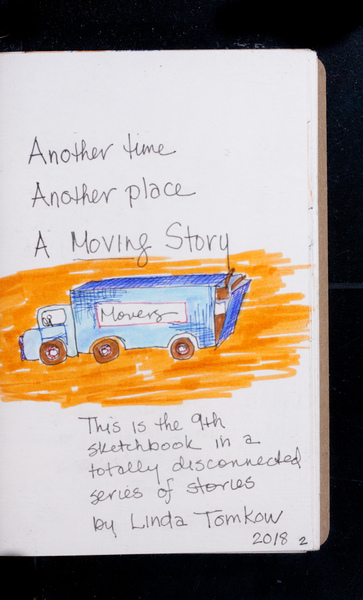 Another time
Another place
A Moving Story
Movers
This is the 9th
sketchbook in a
totally disconnected
series of stories
by Linda Tomkow
2018 2